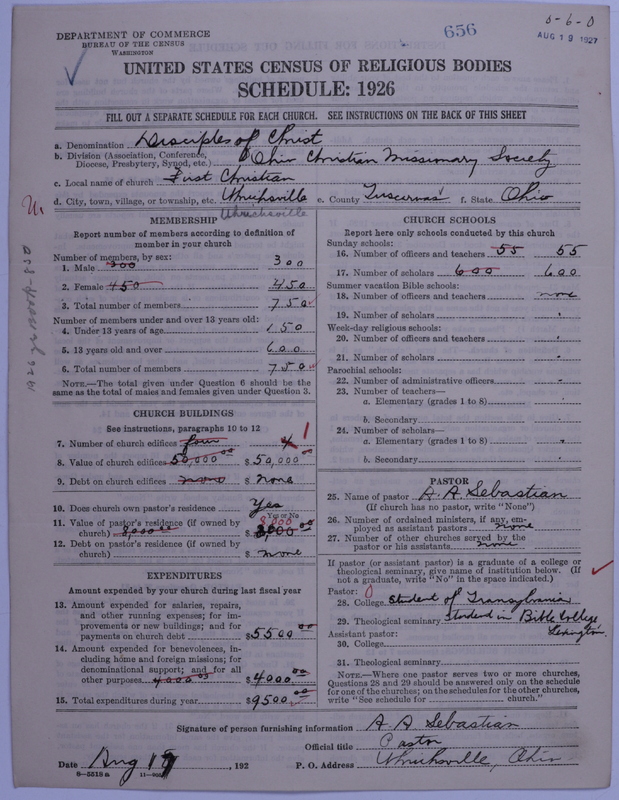 DEPARTMENT OF COMMERCE
BUREAU OF THE CENSUS
WASHINGTON
656
AUG 19 1927
UNITED STATES CENSUS OF RELIGIOUS BODIES
SCHEDULE: 1926
FILL OUT A SEPARATE SCHEDULE FOR EACH CHURCH. SEE INSTRUCTIONS ON THE BACK OF THIS SHEET
a. Denomination Disciples of Christ
b. Division (Association, Conference, Diocese, Presbytery, Synod, etc.) Ohio Christian Missionary Society
c. Local name of church First Christian
d. City, town, village, or township, etc. Uhrichsville e. County Tuscarawas f. State Ohio
Uhrichsville
MEMBERSHIP
Report number of members according to definition of
member in your church
Number of members, by sex:
1. Male 300 300
2. Female 450 450
3. Total number of members 750
Number of members under and over 13 years old:
4. Under 13 years of age 150
5. 13 years old and over 600
6. Total number of members 750
NOTE.—The total given under Question 6 should be
same as the total of males and females given under Question 3.
CHURCH BUILDINGS
See instructions, paragraphs 10 to 12
7. Number of church edifices four 4 1
8. Value of church edifices 50,000.00 $50,000.00
9. Debt on church edifices none $ none
10. Does church own pastor's residence Yes
Yes or No
11. Value of pastor's residence (if owned by
church) 8,000.00 $ 8,000 8000.00
12. Debt on pastor's residence (if owned by
church) $ none
EXPENDITURES
Amount expended by your church during last fiscal year
13. Amount expended for salaries, repairs,
and other running expenses; for im-
provements or new buildings; and for
payments on church debt $5500.00
14. Amount expended for benevolences, in-
cluding home and foreign missions; for
denominational support; and for all
other purposes 4000.00 $4000.00
15. Total expenditures during year $9500.00
CHURCH SCHOOLS
Report here only schools conducted by this church
Sunday schools:
16. Number of officers and teachers 55 55
17. Number of scholars 600 600
Summer vacation Bible schools:
18. Number of officers and teachers none
19. Number of scholars
Week-day religious schools:
20. Number of officers and teachers
21. Number of scholars
Parochial schools:
22. Number of administrative officers
23. Number of teachers—
a. Elementary (grades 1 to 8)
b. Secondary
24. Number of scholars—
a. Elementary (grades 1 to 8)
b. Secondary
PASTOR
25. Name of pastor A. A. Sebastian
(If church has no pastor, write "None")
26. Number of ordained ministers, if any, em-
ployed as assistant pastors none
27. Number of other churches served by the
pastor or his assistants none
If pastor (or assistant pastor) is a graduate of a college or
theological seminary, give name of institution below. (If
not a graduate, write "No" in the space indicated.)
Pastor:
28. College Student of Transylvania
29. Theological seminary Student in Bible College
Lexington
Assistant pastor:
30. College
31. Theological seminary
NOTE.—Where one pastor serves two or more churches,
Questions 28 and 29 should be answered only on the schedule
for one of the churches; on the schedules for the other churches,
write "See schedule for church."
Signature of person furnishing information A. A. Sebastian
Official title Pastor
Date Aug 17, 192 P. O. Address Uhrichsville, Ohio